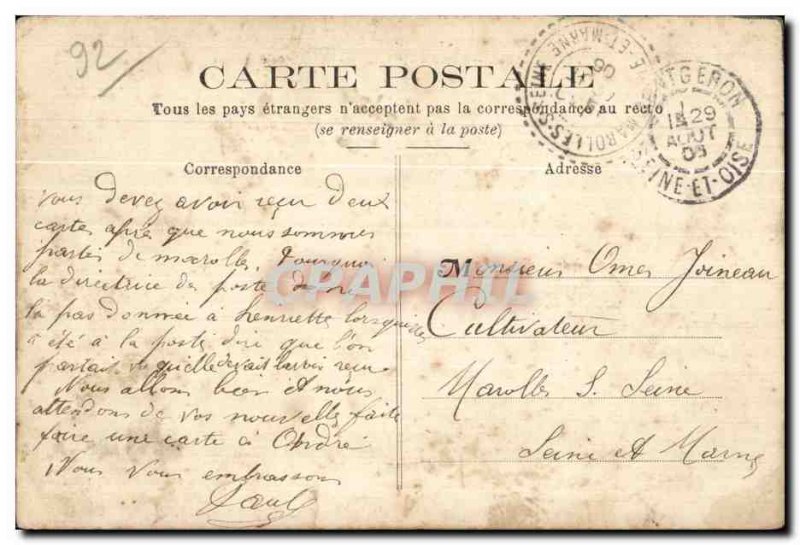 92
CARTE POSTALE
Tous les pays étrangers n'acceptent pas la correspondance au recto
(se renseigner à la poste)
MAROLLES-S-SEINE SEINE-ET-MARNE
MONTGERON
29
AOUT
SEINE-ET-OISE
Correspondance
vous devez avoir reçu deux
cartes après que nous sommes
partis de marolles. Pourquoi
la directrice de poste
la pas donnée à henriette lorsqu'elle
a été à la poste dire que l'on
partait quelle devait lavoir reçu
Nous allons bien et nous
attendons de vos nouvelles faite
faire une carte à André
Nous vous embrassons
Paul
Adresse
Monsieur Omer Joineau
Cultivateur
Marolles S. Seine
Seine et Marne
CPAPHIL